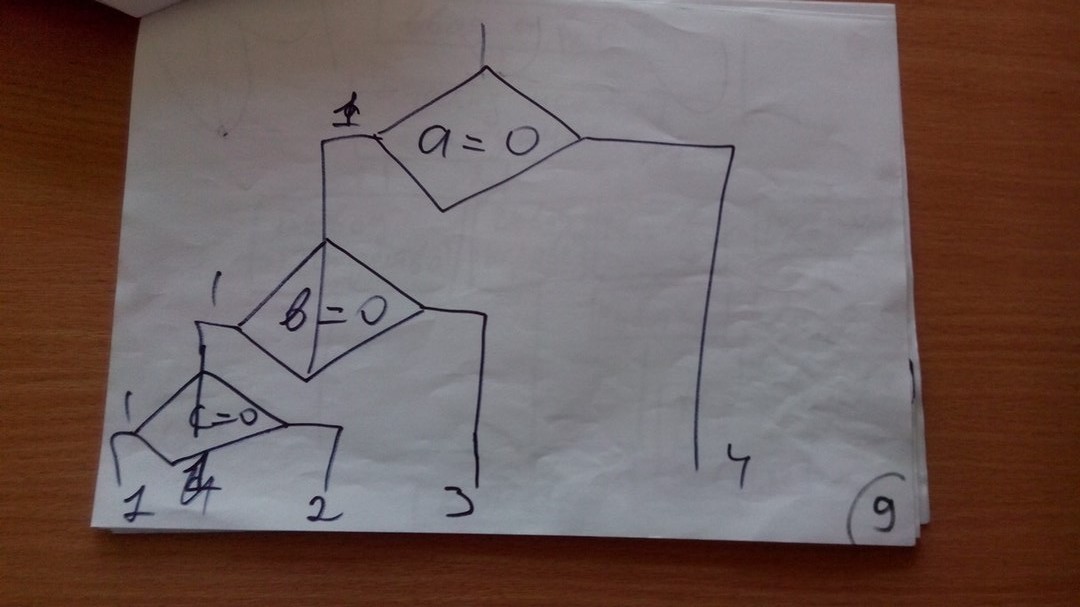 1
a = 0
1
в = 0
1
c = 0
1
2
3
4
9